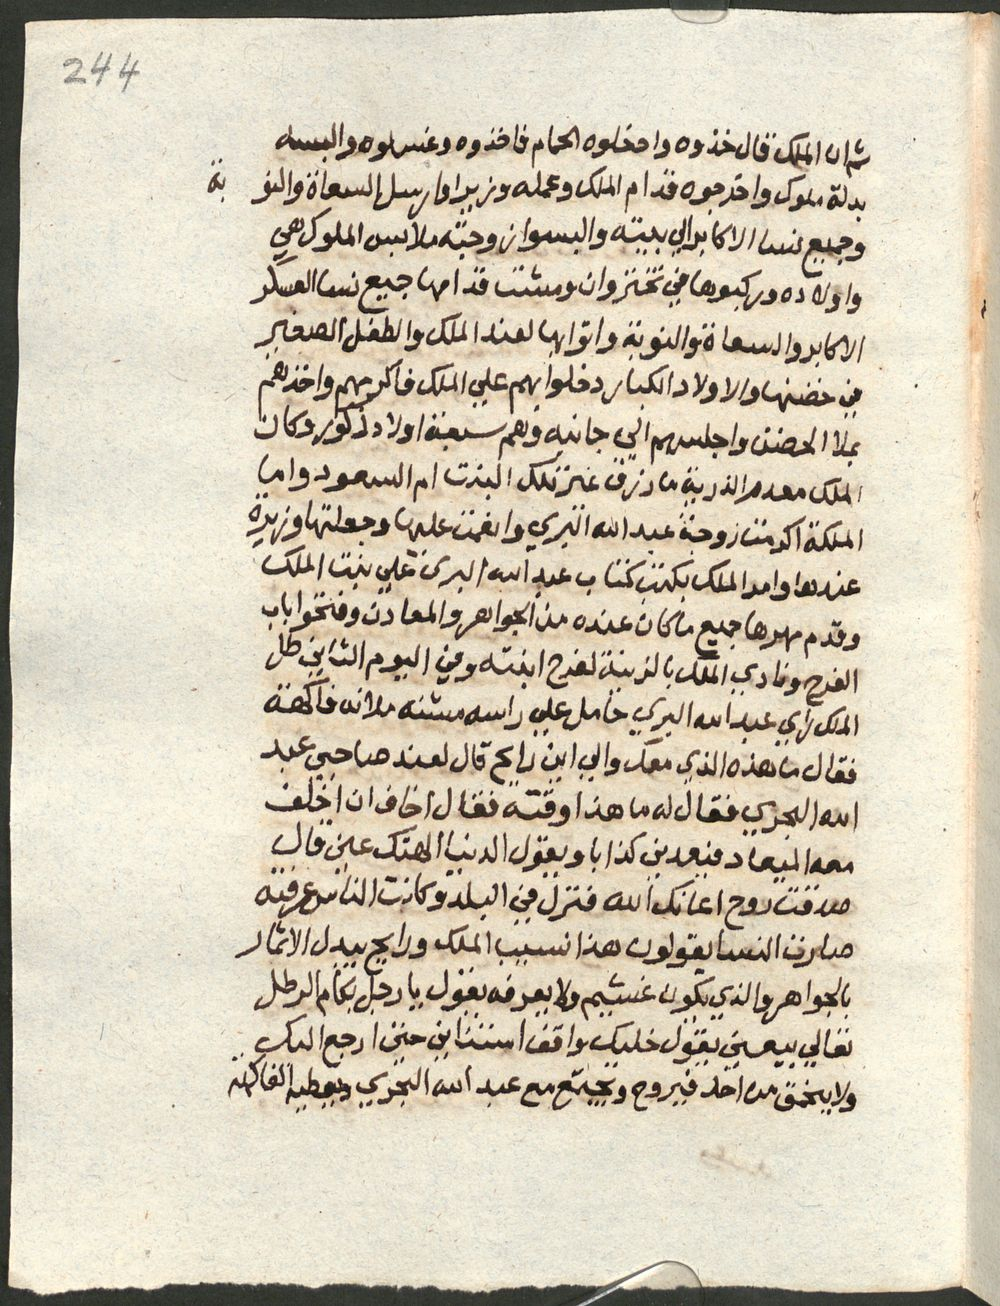 244
ثم ان الملك قال خذوه وادخلوه الحمام فاخذوه وغسلوه والبسه
بدلة ملوك واخرجوه قدام الملك وعمله وزيرا وارسل السعاة والنوبة
وجميع نسا الاكابر الي بيته والبسوا زوجته ملابس الملوك هي
واولاده وركبوها في تختروان ومشت قدامها جميع نسا العسكر
الاكابر والسعاة والنوبة واتوا بها لعند الملك والطفل الصغير
في حضنها والاولاد الكبار دخلوا بهم علي الملك فاكرمهم واخذهم
بملا الحضن واجلسهم الي جانبه وهم سبعة اولاد ذكور وكان
الملك معدم الذرية ما رزق غير تلك البنت ام السعود واما
الملكة اكرمت زوجة عبد الله البري وانعمت عليها وجعلتها وزيرة
عندها وامر الملك بكتب كتاب عبد الله البري علي بنت الملك
وقدم مهرها جميع ما كان عنده من الجواهر والمعادن وفتحوا باب
الفرح ونادي الملك بالزينة لفرح ابنته وفي اليوم الثاني طل
الملك راي عبد الله البري حامل علي راسه مشنه ملانه فاكهة
فقال ما هذه الذي معك والي اين رايح قال لعند صاحبي عبد
الله البحري فقال له ما هذا وقته فقال اخاف ان اخلف
معه الميعاد فيعدني كذابا ويقول الدنيا الهتك عني قال
صدقت روح اعانك الله فنزل في البلد وكانت الناس عرفته
صارت النسا يقولون هذا نسيب الملك ورايح يبدل الاثمار
بالجواهر والذي يكون غشيم ولا يعرفه يقول يا رجل بكام الرطل
تعالي بيعني يقول خليك واقف استناني حتي ارجع اليك
ولا يخمق من احد فيروح ويجتمع مع عبد الله البحري ويعطيه الفاكهة